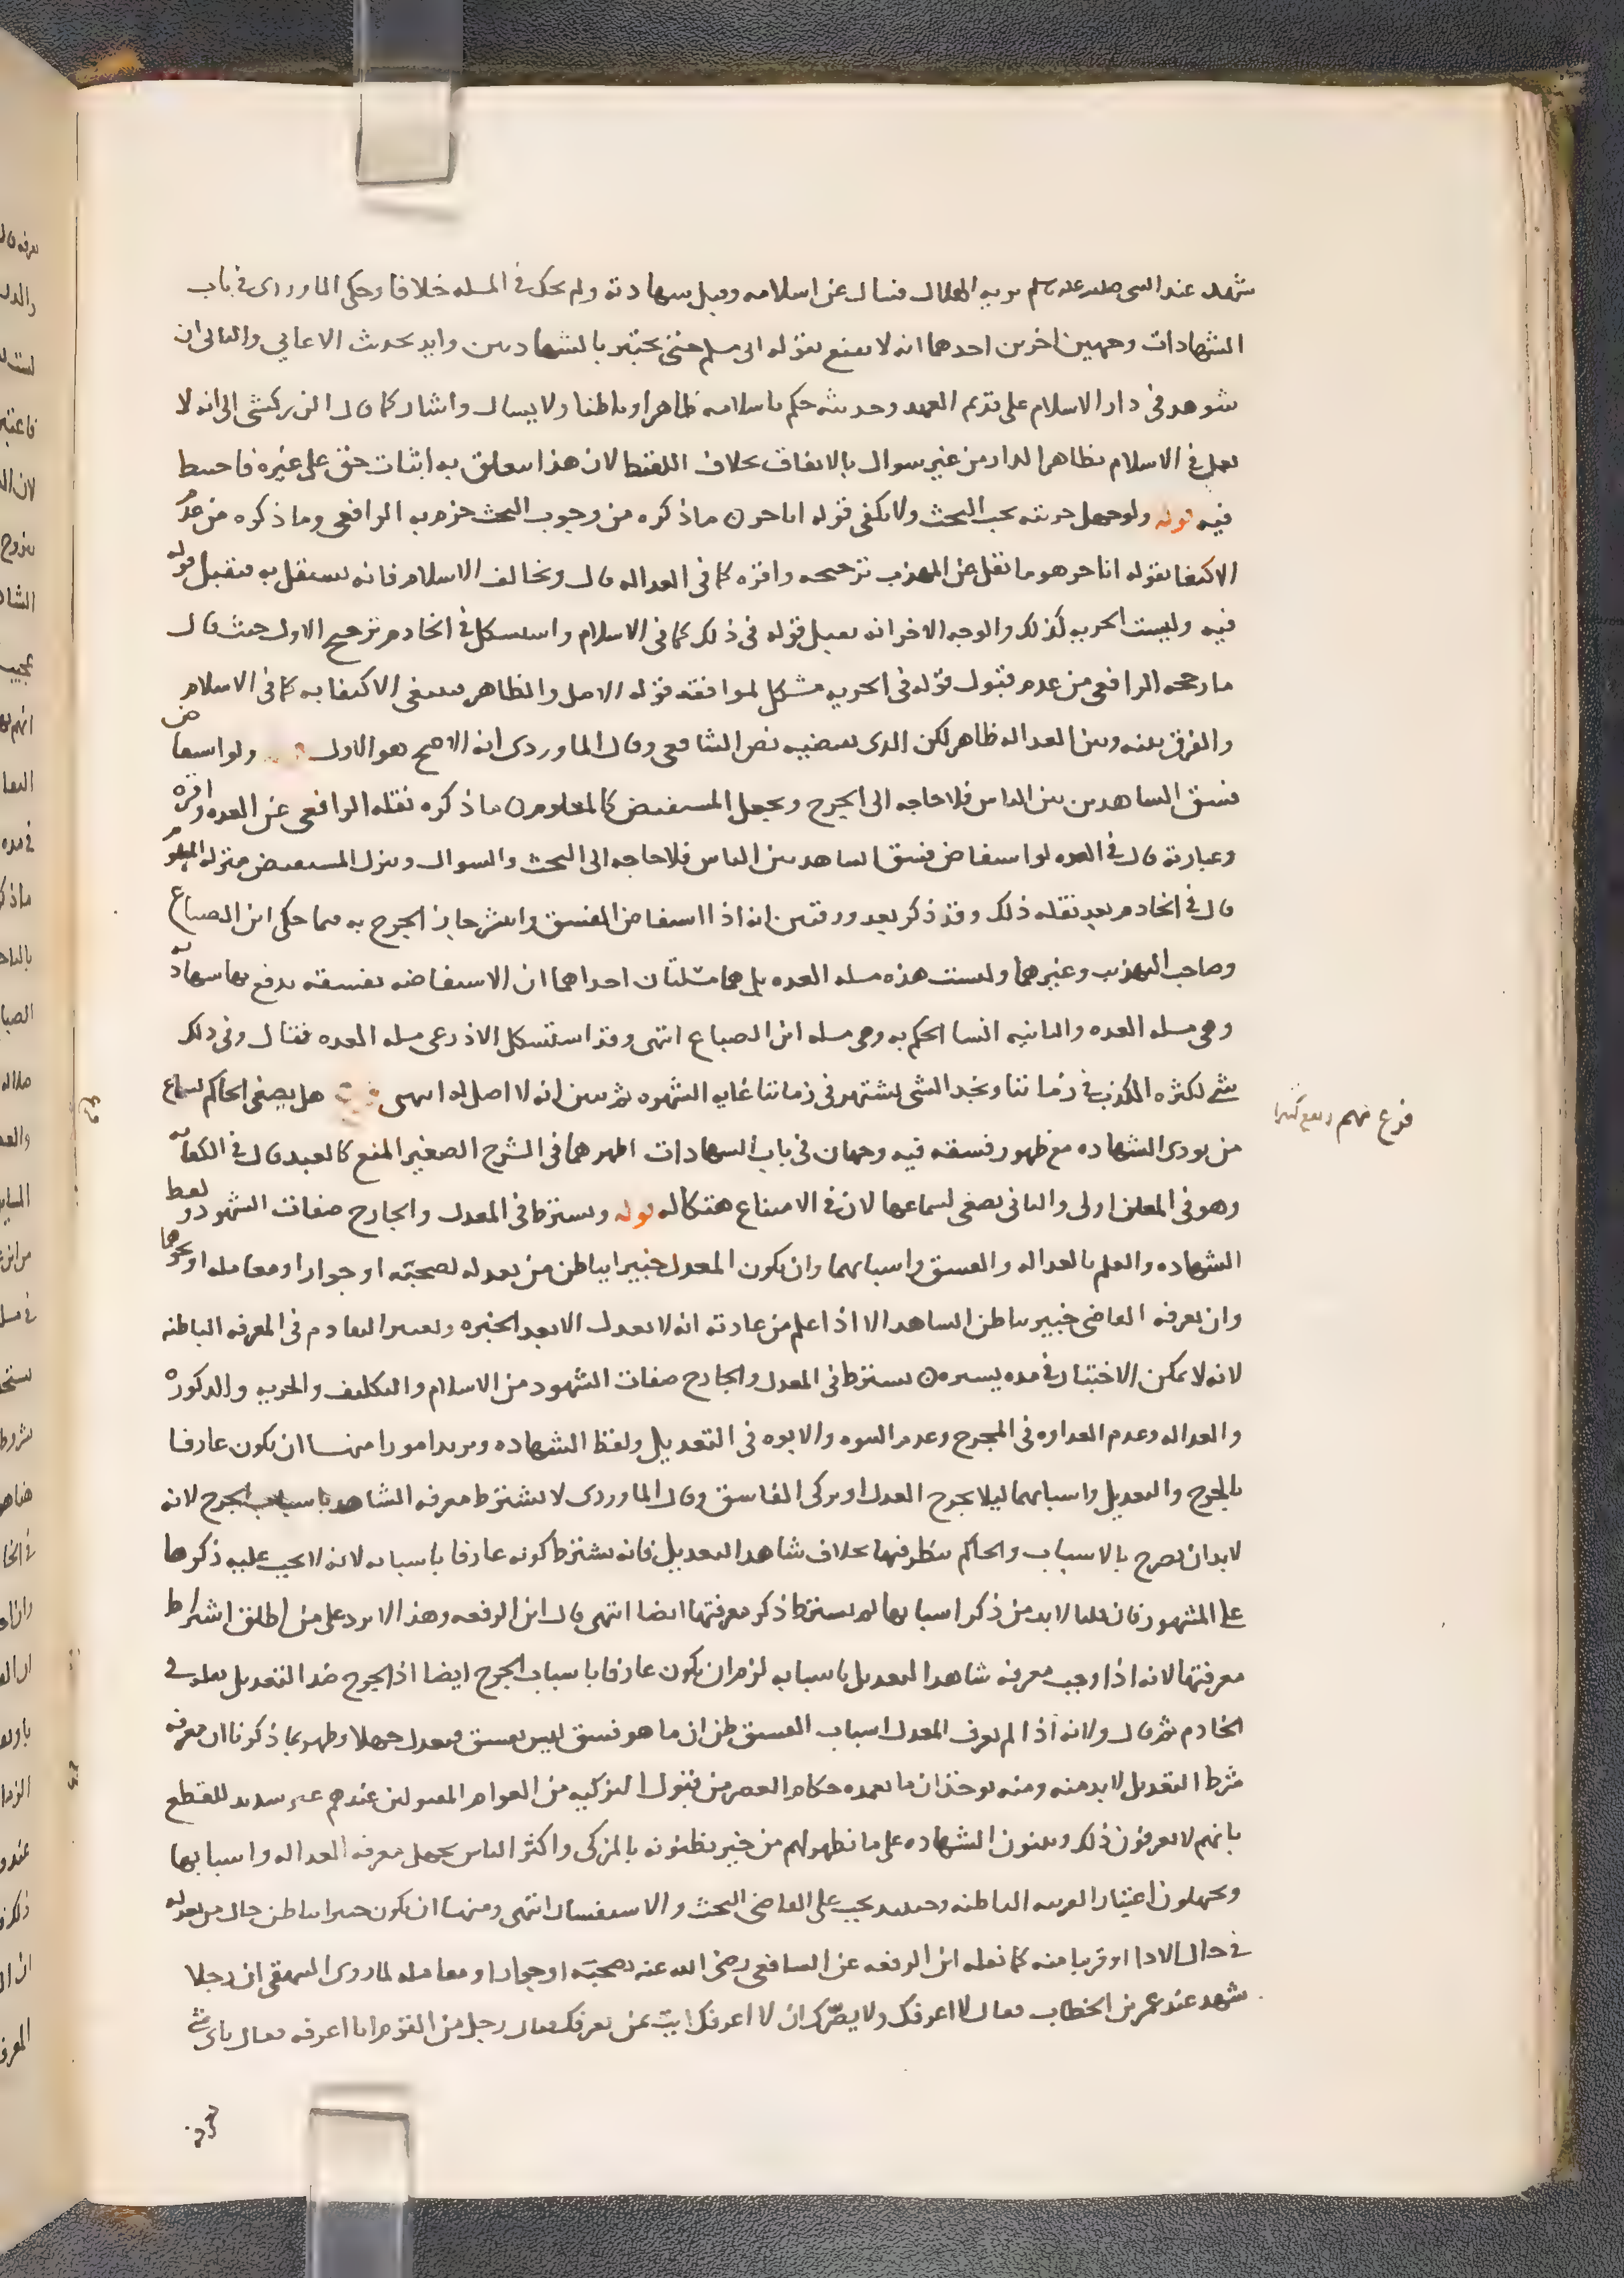 شهد عند النبي صلى الله عليه وسلم برويه الهلال فسال عن اسلامه وقبل شهادته ولم يحك في المسله خلافا وحكى الماوردى في باب
الشهادات وجهين اخرين احدهما انه لا يقنع بقوله انى مسلم حتى يختبر بالشهادتين وايد بحديث الاعرابي والثانى ان
شوهد في دار الاسلام على قديم العهد وحديثه حكم باسلامه ظاهرا وباطنا ولا يسال واشار كما قال الزركشى الى انه لا
يعمل في الاسلام بظاهر الدار من غير سوال بالاتفاق بخلاف اللقيط لان هذا يتعلق به اثبات حق على غيره فاحتيط
فيه قوله ولو جهل حريته يجب البحث ولا يكفى قوله انا حر ن ما ذكره من وجوب البحث جزم به الرافعى وما ذكره من عدم
الاكتفا بقوله انا حر هو ما نقل عن المهذب ترجيحه واقره كما في العداله قال ويخالف الاسلام فانه يستقل به فيقبل قوله
فيه وليست الحريه كذلك والوجه الاخر انه يقبل قوله في ذلك كما في الاسلام واستشكل في الخادم ترجيح الاول حيث قال
ما رجحه الرافعى من عدم قبول قوله في الحريه مشكل لموافقة قوله الاصل والظاهر فينبغى الاكتفا به كما في الاسلام
والفرق بينه وبين العداله ظاهر لكن الذى يقتضيه نص الشافعى وقال الماوردى انه الاصح هو الاول ولو استفاض
فسق الشاهدين بين الناس فلا حاجه الى الجرح ويجعل المستفيض كالمعلوم ن ما ذكره نقله الرافعى عن العده واقره
وعبارته قال في العده لو استفاض فسق الشاهد بين الناس فلا حاجه الى البحث والسوال وينزل المستفيض منزله المعلوم
قال في الخادم بعد نقله ذلك وقد ذكر بعد ورقتين انه اذا استفاض الفسق وانتشر جاز الجرح به فيما حكى ابن الصباغ
وصاحب التهذيب وغيرهما وليست هذه مسله العده بل هما مسئلتان احداهما ان الاستفاضه بفسقه يدفع بها شهادته
وهى مسله العده والثانيه انشا الحكم به وهى مسله ابن الصباغ انتهى وقد استشكل الاذرعى مسله العده فقال وفى ذلك
شى لكثره الكذب في زماننا ونجد الشى يشتهر في زماننا غايه الشهره ثم يتبين انه لا اصل له انتهى هل يصغى الحاكم لسماع
فرع مهم ويقع كثيرا
من يودى الشهاده مع ظهور فسقه فيه وجهان في باب الشهادات اظهرهما في الشرح الصغير المنع كالعبد قال في الكفايه
وهو في المعلن اولى والثانى يصغى لسماعها لان في الامتناع هتكا له قوله ويشترط في المعدل والجارح صفات الشهود ولفظ
الشهاده والعلم بالعداله والفسق واسبابهما وان يكون المعدل خبيرا بباطن من يعدله لصحبته او جوار او معامله او نحوهما
وان يعرفه القاضى خبير بباطن الشاهد الا اذا علم من عادته انه لا يعدل الا بعد الخبره ويعتبر التقادم في المعرفه الباطنه
لانه لا يمكن الاختبار في مده يسيره ن يشترط في المعدل والجارح صفات الشهود من الاسلام والتكليف والحريه والذكوره
والعداله وعدم العداوه في المجرح وعدم البنوه والابوه في التعديل ولفظ الشهاده ويريد امورا منها ان يكون عارفا
بالجرح والتعديل واسبابهما ليلا يجرح العدل او يزكى الفاسق وقال الماوردى لا يشترط معرفه الشاهد باسباب الجرح لانه
لابد ان يصرح بالاسباب والحاكم ينظر فيها بخلاف شاهد التعديل فانه يشترط كونه عارفا باسبابه لانه لا يجب عليه ذكرها
على المشهور فان قلنا لابد من ذكر اسبابها لم يشترط ذكر معرفتها ايضا انتهى قال ابن الرفعه وهذا لا يرد على من اطلق اشتراط
معرفتها لانه اذا وجب معرفه شاهد التعديل باسبابه لزم ان يكون عارفا باسباب الجرح ايضا اذ الجرح ضد التعديل نقله في
الخادم ثم قال ولانه اذا لم يعرف المعدل اسباب الفسق ظن ان ما هو فسق ليس بفسق فيعدل جهلا وظهر بما ذكرنا ان معرفه
شرط التعديل لابد منه ومنه يوخذ ان ما يعمده حكام العصر من قبول التزكيه من العوام المقبولين عندهم غير سديد للقطع
بانهم لا يعرفون ذلك ويبنون الشهاده على ما يظهر لهم من خير يظنونه بالمزكى واكثر الناس يجهل معرفه العداله واسبابها
ويجهلون اعتبار المعرفه الباطنه وحينئذ يجب على القاضى البحث والاستفسار انتهى ومنها ان يكون خبيرا بباطن حال من يعدله
في حال الادا او قريبا منه كما نقله ابن الرفعه عن الشافعى رضى الله عنه بصحبته او جوار او معامله لما روى البيهقى ان رجلا
شهد عند عمر بن الخطاب فقال لا اعرفك ولا يضرك ان لا اعرفك ايت بمن يعرفك فقال رجل من القوم انا اعرفه فقال باى شى